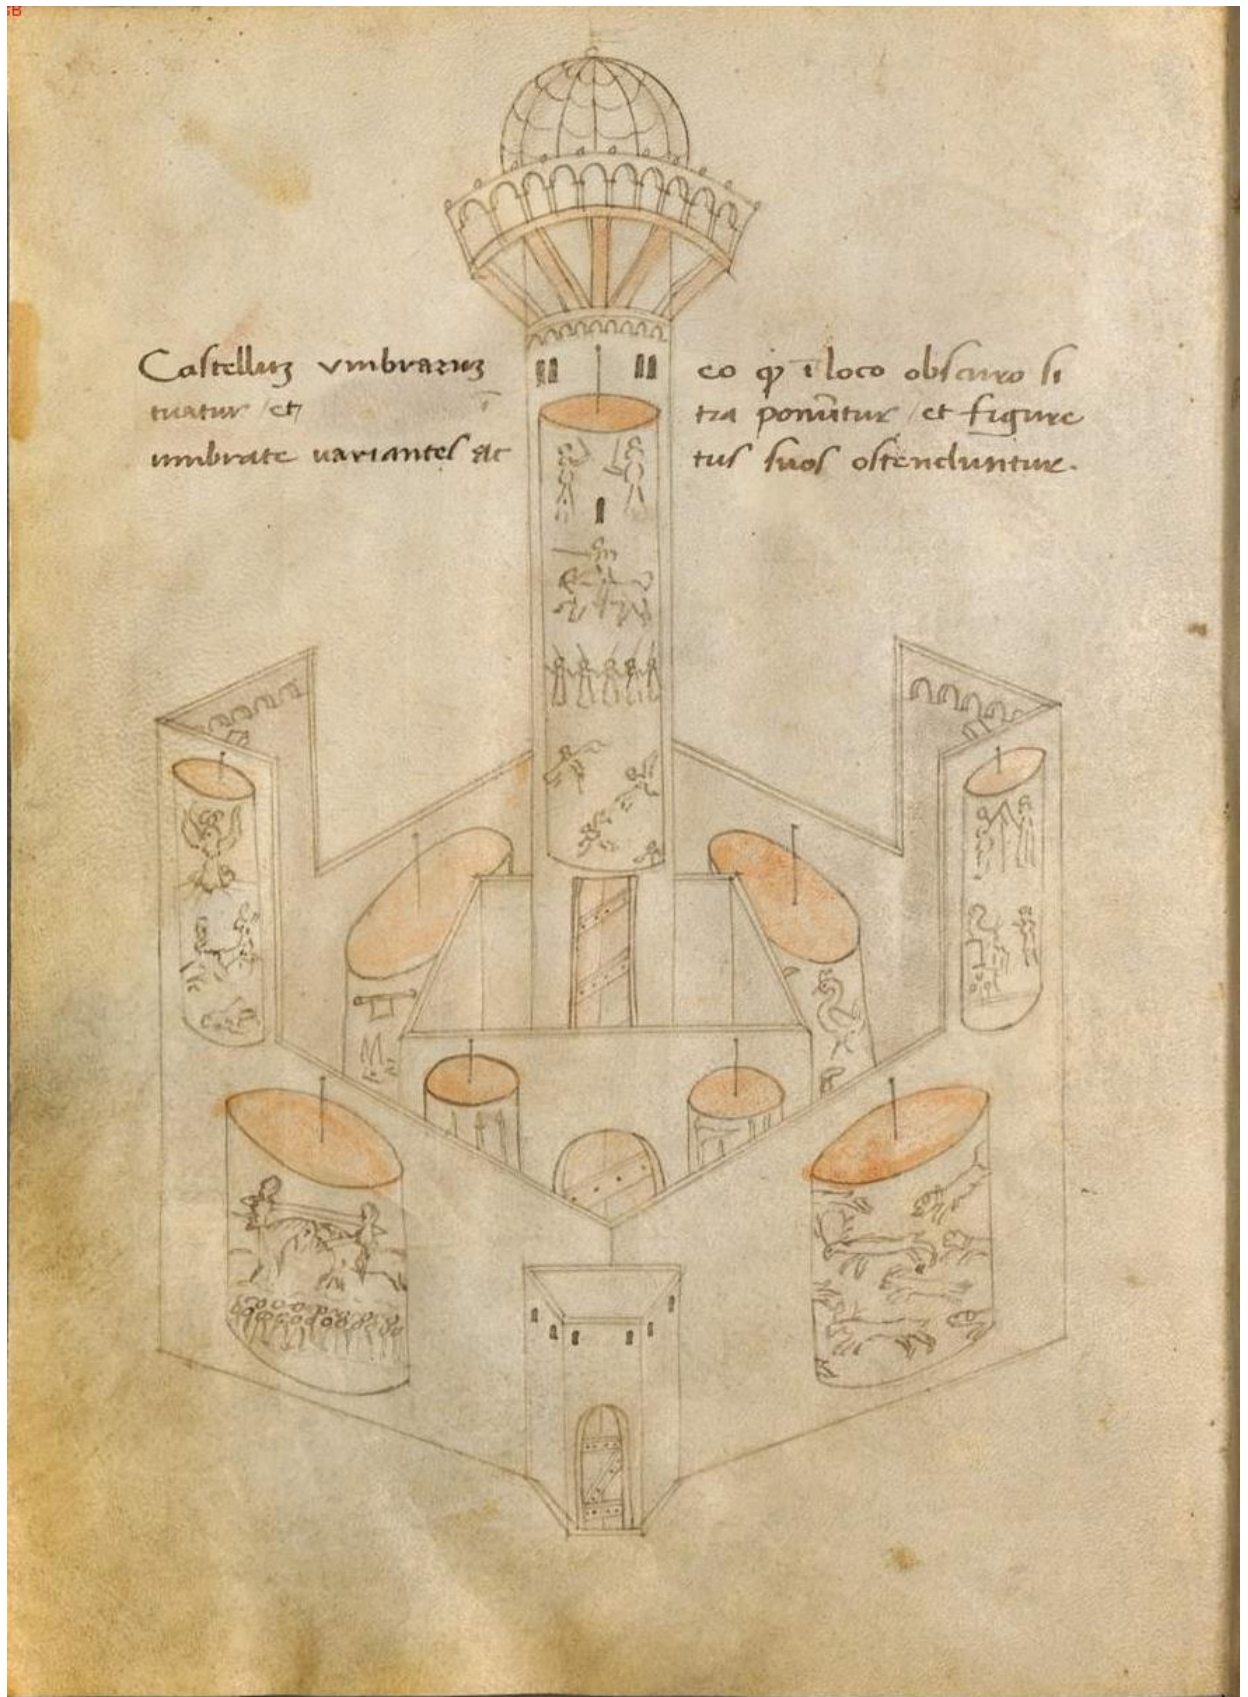 Castelluʒ vmbraruʒ eo qꝫ ī loco obscuro si
tuatur / et ī tra ponūtur / et figure
umbrate variantes ac tus suos ostenduntur.